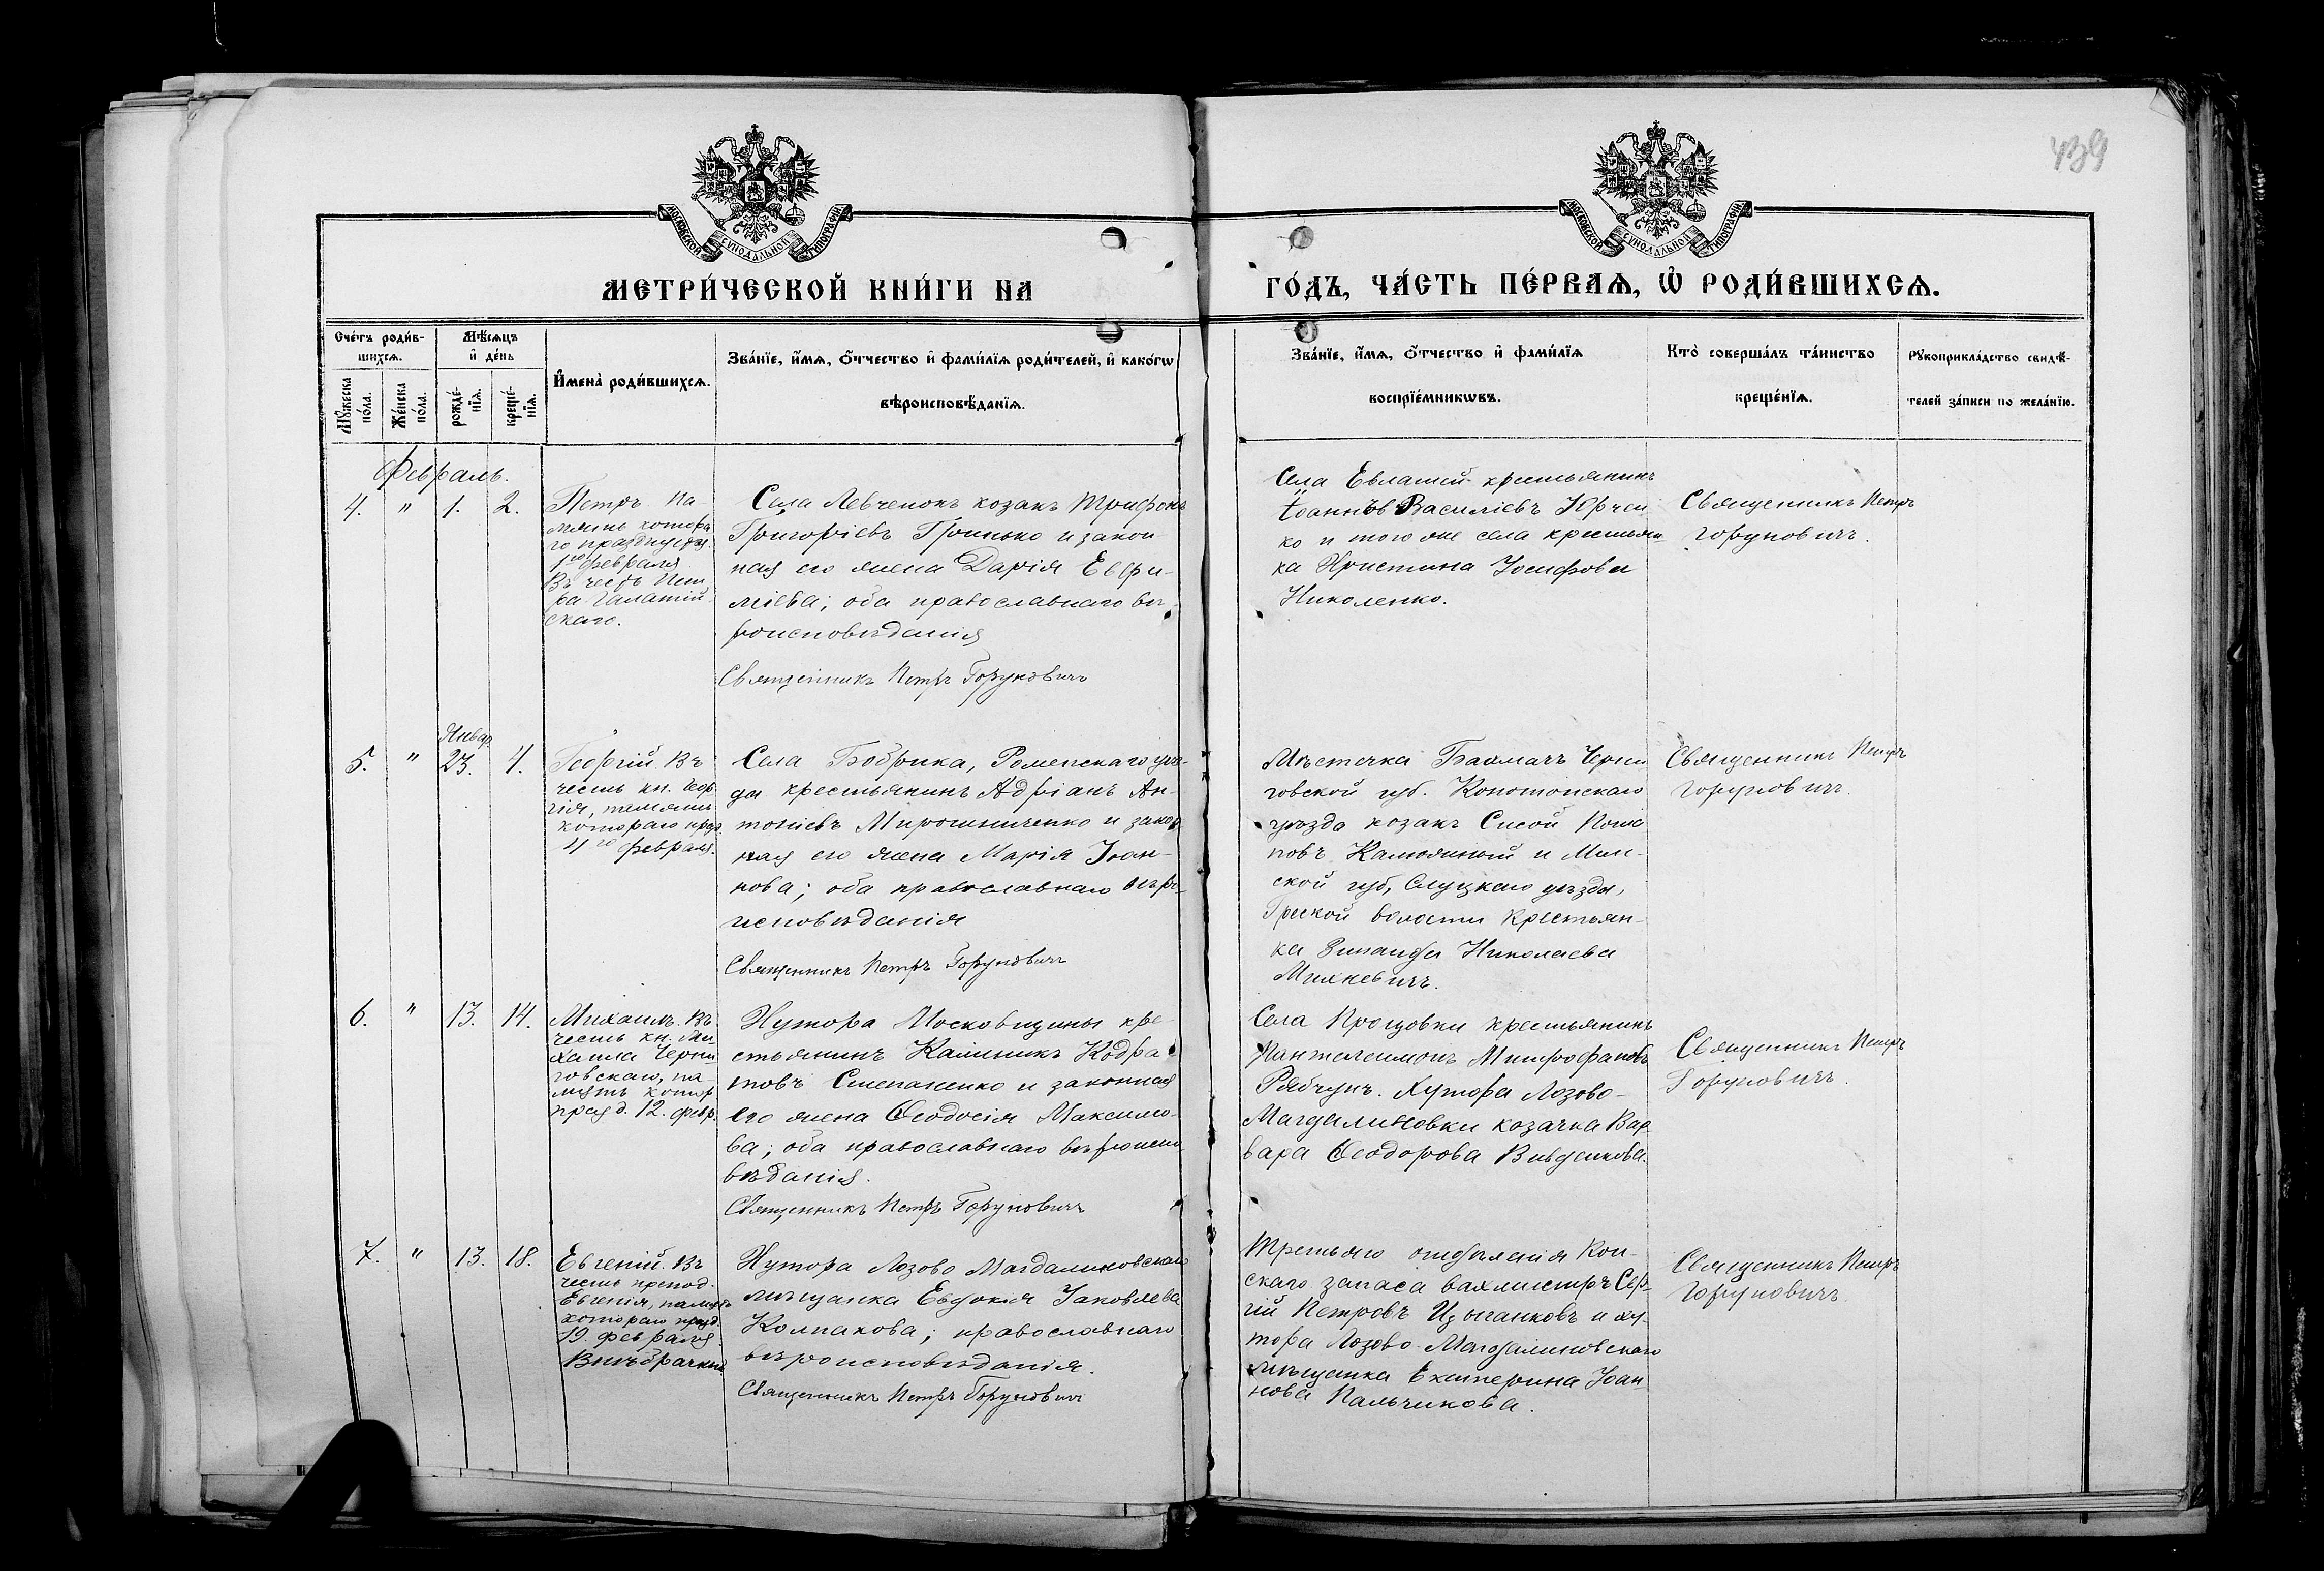 439
МОСКОВСКОЙ СѴНОДАЛЬНОЙ ТИПОГРАФІИ
МОСКОВСКОЙ СѴНОДАЛЬНОЙ ТИПОГРАФІИ
МЕТРИ́ЧЕСКОЙ КНИ́ГИ НА
ГО́ДЪ, ЧА́СТЬ ПЕ́РВАѦ, Ѡ҆ РОДИ́ВШИХСѦ.
Сче́тъ роди́в-
шихсѧ.
Мѣ́сѧцъ
и҆ де́нь
Мꙋ́жеска
по́ла.
Же́нска
по́ла.
рожде́-
нїѧ.
креще́-
нїѧ.
И҆мена̀ роди́вшихсѧ.
Зва́нїе, и҆́мѧ, ѻ҆́тчество и҆ фами́лїѧ роди́телей, и҆ како́гѡ
вѣроисповѣ́данїѧ.
Зва́нїе, и҆́мѧ, ѻ҆́тчество и҆ фами́лїѧ
воспрїе́мникѡвъ.
Кто̀ соверша́лъ та́инство
креще́нїѧ.
Рꙋкоприкла́дство свидѣ́-
телей за́писи по жела́нїю.
Февраль.
4. " 1. 2.
Петръ. Па-
мять котора
го празднуется
1го февраля
Въ честь Пет
ра Галатій-
скаго.
Села Левченокъ козакъ Трифонъ
Григоріевъ Гринько и закон
ная его жена Дарія Евфи-
міева; оба православнаго вѣ-
роисповѣданія
Священникъ Петръ Горуновичъ
Села Евлаший крестьянинъ
Іоаннъ Василіевъ Юрчен
ко и того же села крестьян-
ка Христина Іосифова
Николенко.
Священникъ Петръ
Горуновичъ.
Январ.
5. " 23. 4.
Георгій. Въ
честь кн. Геор
гія, память
котораго праз.
4го февраля.
Села Бобрика, Роменскаго уѣз-
да крестьянинъ Адріанъ Ан-
тоніевъ Мирошниченко и закон
ная его жена Марія Іоан-
нова; оба православнаго вѣро-
исповѣданія
Священникъ Петръ Горуновичъ
Мѣстечка Бахмачъ Черни
говской губ. Конотопскаго
уѣзда козакъ Сисой Пота
повъ Калюжный и Мин-
ской губ, Слуцкаго уѣзда,
Греской волости крестьян-
ка Зинаида Николаева
Михневичъ.
Священникъ Петръ
Горуновичъ.
6. " 13. 14.
Михаилъ. Въ
честь кн. Ми-
хаила Черни
говскаго, па-
мять котор
празд. 12. февр.
Хутора Московщины кре-
стьянинъ Калиникъ Кодра
товъ Степаненко и законная
его жена Ѳеодосія Максимо-
ва; оба православнаго вѣроиспо
вѣданія.
Священникъ Петръ Горуновичъ
Села Процовки крестьянинъ
Пантелеимонъ Митрофановъ
Рябчунъ. Хутора Лозово-
Магдалиновки козачка Вар
вара Ѳеодорова Вивденкова.
Священникъ Петръ
Горуновичъ.
7. " 13. 18.
Евгеній. Въ
честь препод.
Евгенія, память
котораго празд.
19. февраля.
Внѣбрачный
Хутора Лозово Магдалиновскаго
мѣщанка Евдокія Іаковлева
Колпакова; православнаго
вѣроисповѣданія.
Священникъ Петръ Горуновичъ
Третьяго отдѣленія Кон-
скаго запаса вахмистръ Сер-
гій Петровъ Цыганковъ и ху-
тора Лозово Магдалиновскаго
мѣщанка Екатерина Іоан
нова Пальчикова.
Священникъ Петръ
Горуновичъ.